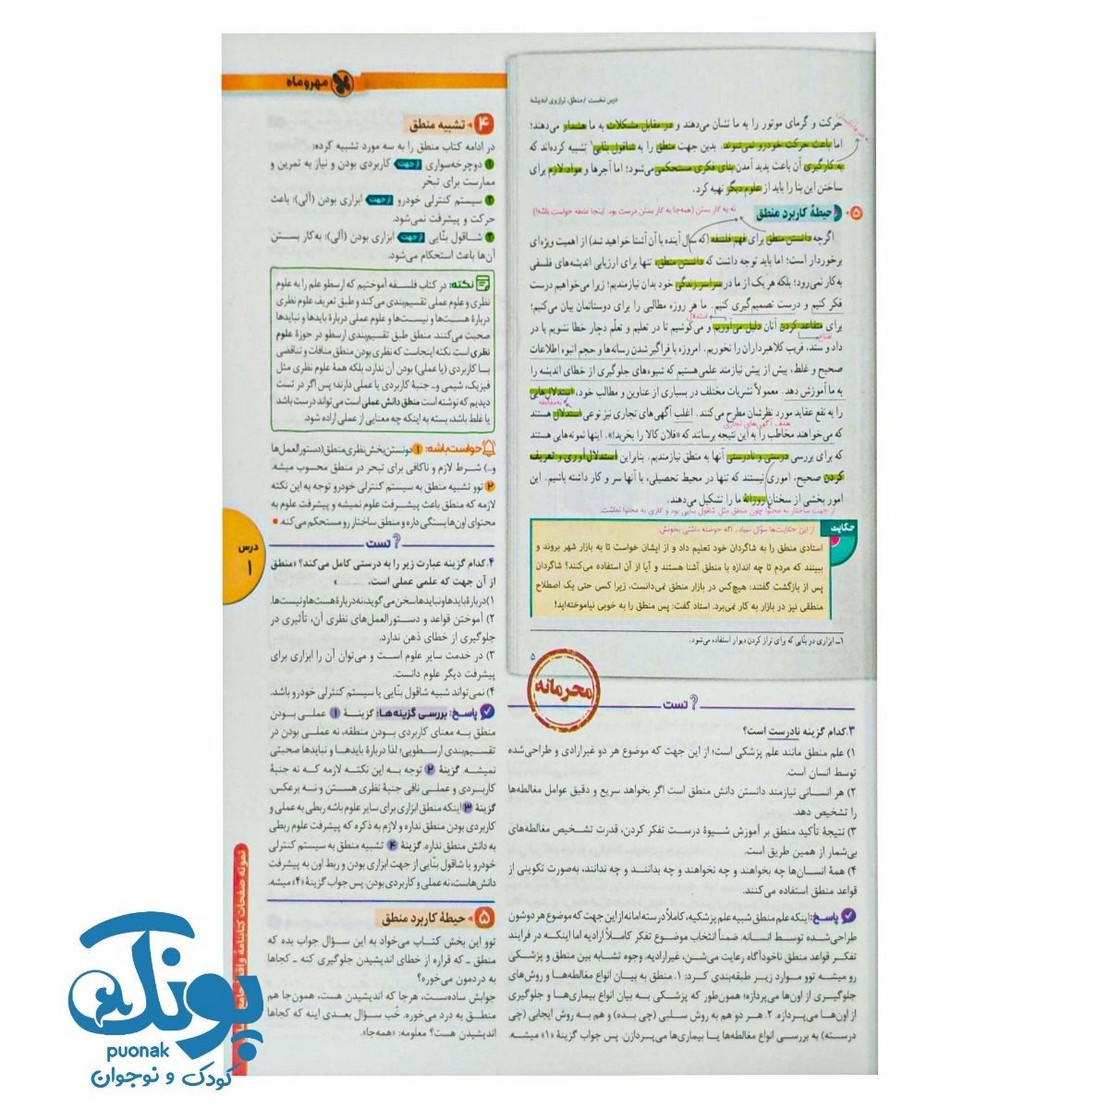 درس نخست / منطق، ترازوی اندیشه
حرکت و گرمای موتور را به ما نشان می‌دهند و در مقابل مشکلات به ما هشدار می‌دهند؛
اما باعث حرکت خودرو نمی‌شوند. بدین جهت منطق را به شاقول بنایی۱ تشبیه کرده‌اند که
به کارگیری آن باعث پدید آمدن بنای فکری مستحکمی می‌شود؛ اما آجرها و مواد لازم برای
ساختن این بنا را باید از علوم دیگر تهیه کرد.
۵ حیطهٔ کاربرد منطق
نه به کار بستن (همه‌جا به کار بستن درست بود. اینجا غلطه حواست باشه!)
اگرچه دانستن منطق برای فهم فلسفه (که سال آینده با آن آشنا خواهید شد) از اهمیت ویژه‌ای
برخوردار است؛ اما باید توجه داشت که دانستن منطق، تنها برای ارزیابی اندیشه‌های فلسفی
به کار نمی‌رود؛ بلکه هر یک از ما در سراسر زندگی خود بدان نیازمندیم؛ زیرا می‌خواهیم درست
فکر کنیم و درست تصمیم‌گیری کنیم. ما هر روزه مطالبی را برای دوستانمان بیان می‌کنیم؛
استدلال
برای متقاعد کردن آنان دلیل می‌آوریم و می‌کوشیم تا در تعلیم و تعلّم دچار خطا نشویم یا در
داد و ستد، فریب کلاهبرداران را نخوریم. امروزه با فراگیر شدن رسانه‌ها و حجم انبوه اطلاعات
صحیح و غلط، بیش از پیش نیازمند علمی هستیم که شیوه‌های جلوگیری از خطای اندیشه را
به ما آموزش دهد. معمولاً نشریات مختلف در بسیاری از عناوین و مطالب خود، استدلال‌هایی
را به نفع عقاید مورد نظرشان مطرح می‌کنند. اغلب آگهی‌های تجاری نیز نوعی استدلال هستند
هدف آگهی‌های تجاری
که می‌خواهند مخاطب را به این نتیجه برسانند که «فلان کالا را بخرید!». اینها نمونه‌هایی هستند
که برای بررسی درستی و نادرستی آنها به منطق نیازمندیم. بنابراین استدلال‌آوری و تعریف
کردن صحیح، اموری نیستند که تنها در محیط تحصیلی، با آنها سر و کار داشته باشیم. این
امور بخشی از سخنان روزانهٔ ما را تشکیل می‌دهند.
از جهت ساختار نه محتوا چون منطق مثل شاقول بنایی بود و کاری به محتوا نداشت.
حکایت
از این حکایت‌ها سؤال نمیاد، اگه حوصله داشتی بخونش.
استادی منطق را به شاگردان خود تعلیم داد و از ایشان خواست تا به بازار شهر بروند و
ببینند که مردم تا چه اندازه با منطق آشنا هستند و آیا از آن استفاده می‌کنند؟ شاگردان
پس از بازگشت گفتند: هیچ‌کس در بازار منطق نمی‌دانست، زیرا کسی حتی یک اصطلاح
منطقی نیز در بازار به کار نمی‌برد. استاد گفت: پس منطق را به خوبی نیاموخته‌اید!
۱ـ ابزاری در بنّایی که برای تراز کردن دیوار استفاده می‌شود.
۵
محرمانه
تست
۳. کدام گزینه نادرست است؟
۱) علم منطق مانند علم پزشکی است؛ از این جهت که موضوع هر دو غیرارادی و طراحی‌شده
توسط انسان است.
۲) هر انسانی نیازمند دانستن دانش منطق است اگر بخواهد سریع و دقیق عوامل مغالطه‌ها
را تشخیص دهد.
۳) نتیجهٔ تأکید منطق بر آموزش شیوهٔ درست تفکر کردن، قدرت تشخیص مغالطه‌های
بی‌شمار از همین طریق است.
۴) همهٔ انسان‌ها چه بخواهند و چه نخواهند و چه بدانند و چه ندانند، به‌صورت تکوینی از
قواعد منطق استفاده می‌کنند.
پاسخ: اینکه علم منطق شبیه علم پزشکیه، کاملاً درسته اما نه از این جهت که موضوع هر دوشون
طراحی‌شده توسط انسانه. ضمناً انتخاب موضوع تفکر کاملاً ارادیه اما اینکه در فرایند
تفکر قواعد منطق ناخودآگاه رعایت می‌شن، غیرارادیه. وجوه تشابه بین منطق و پزشکی
رو میشه توو موارد زیر طبقه‌بندی کرد: ۱. منطق به بیان انواع مغالطه‌ها و روش‌های
جلوگیری از اون‌ها می‌پردازه؛ همون‌طور که پزشکی به بیان انواع بیماری‌ها و جلوگیری
از اون‌ها می‌پردازه. ۲. هر دو هم به روش سلبی (چی بده) و هم به روش ایجابی (چی
درسته) به بررسی انواع مغالطه‌ها یا بیماری‌ها می‌پردازن. پس جواب گزینهٔ «۱» میشه.
مهروماه
۴ تشبیه منطق
در ادامه کتاب منطق را به سه مورد تشبیه کرده:
۱ دوچرخه‌سواری از جهت کاربردی بودن و نیاز به تمرین و
ممارست برای تبحّر
۲ سیستم کنترلی خودرو از جهت ابزاری بودن (آلی): باعث
حرکت و پیشرفت نمی‌شود.
۳ شاقول بنّایی از جهت ابزاری بودن (آلی): به‌کار بستن
آن‌ها باعث استحکام می‌شود.
نکته: در کتاب فلسفه آموختیم که ارسطو علم را به علوم
نظری و علوم عملی تقسیم‌بندی می‌کند و طبق تعریف علوم نظری
دربارهٔ هست‌ها و نیست‌ها و علوم عملی دربارهٔ بایدها و نبایدها
صحبت می‌کنند. منطق طبق تقسیم‌بندی ارسطو در حوزهٔ علوم
نظری است نکته اینجاست که نظری بودن منطق منافات و تناقضی
با کاربردی (یا عملی) بودن آن ندارد، بلکه همهٔ علوم نظری مثل
فیزیک، شیمی و... جنبهٔ کاربردی یا عملی دارند؛ پس اگر در تست
دیدیم که نوشته است منطق دانش عملی است می‌تواند درست باشد
یا غلط باشد، بسته به اینکه چه معنایی از عملی اراده شود.
حواست باشه: ۱ دونستن بخش نظری منطق (دستورالعمل‌ها
و...) شرط لازم و ناکافی برای تبحر در منطق محسوب میشه.
۲ توو تشبیه منطق به سیستم کنترلی خودرو توجه به این نکته
لازمه که منطق باعث پیشرفت علوم نمیشه و پیشرفت علوم به
محتوای اون‌ها بستگی داره و منطق ساختار رو مستحکم می‌کنه.
درس
۱
تست
۴. کدام گزینه عبارت زیر را به درستی کامل می‌کند؟ «منطق
از آن جهت که علمی عملی است، ............»
۱) دربارهٔ بایدها و نبایدها سخن می‌گوید، نه دربارهٔ هست‌ها و نیست‌ها.
۲) آموختن قواعد و دستورالعمل‌های نظری آن، تأثیری در
جلوگیری از خطای ذهن ندارد.
۳) در خدمت سایر علوم است و می‌توان آن را ابزاری برای
پیشرفت دیگر علوم دانست.
۴) نمی‌تواند شبیه شاقول بنّایی یا سیستم کنترلی خودرو باشد.
پاسخ: بررسی گزینه‌ها: گزینهٔ ۱ عملی بودن
منطق به معنای کاربردی بودن منطقه، نه عملی بودن در
تقسیم‌بندی ارسطویی؛ لذا دربارهٔ بایدها و نبایدها صحبتی
نمیشه. گزینهٔ ۲ توجه به این نکته لازمه که نه جنبهٔ
کاربردی و عملی نافی جنبهٔ نظری هستن و نه برعکس.
گزینهٔ ۳ اینکه منطق ابزاری برای سایر علوم باشه ربطی به عملی و
کاربردی بودن منطق نداره و لازم به ذکره که پیشرفت علوم ربطی
به دانش منطق نداره. گزینهٔ ۴ تشبیه منطق به سیستم کنترلی
خودرو یا شاقول بنّایی از جهت ابزاری بودن و ربط اون به پیشرفت
دانش‌هاست، نه عملی و کاربردی بودن. پس جواب گزینهٔ «۴» میشه.
۵ حیطهٔ کاربرد منطق
توو این بخش کتاب می‌خواد به این سؤال جواب بده که
منطق ـ که قراره از خطای اندیشیدن جلوگیری کنه ـ کجاها
به دردمون می‌خوره؟
جوابش ساده‌ست، هرجا که اندیشیدن هست، همون‌جا هم
منطق به درد می‌خوره. خُب سؤال بعدی اینه که کجاها
اندیشیدن هست؟ معلومه: «همه‌جا».
نمونه صفحات کتابنامهٔ
جامع
پونک
puonak
کودک و نوجوان